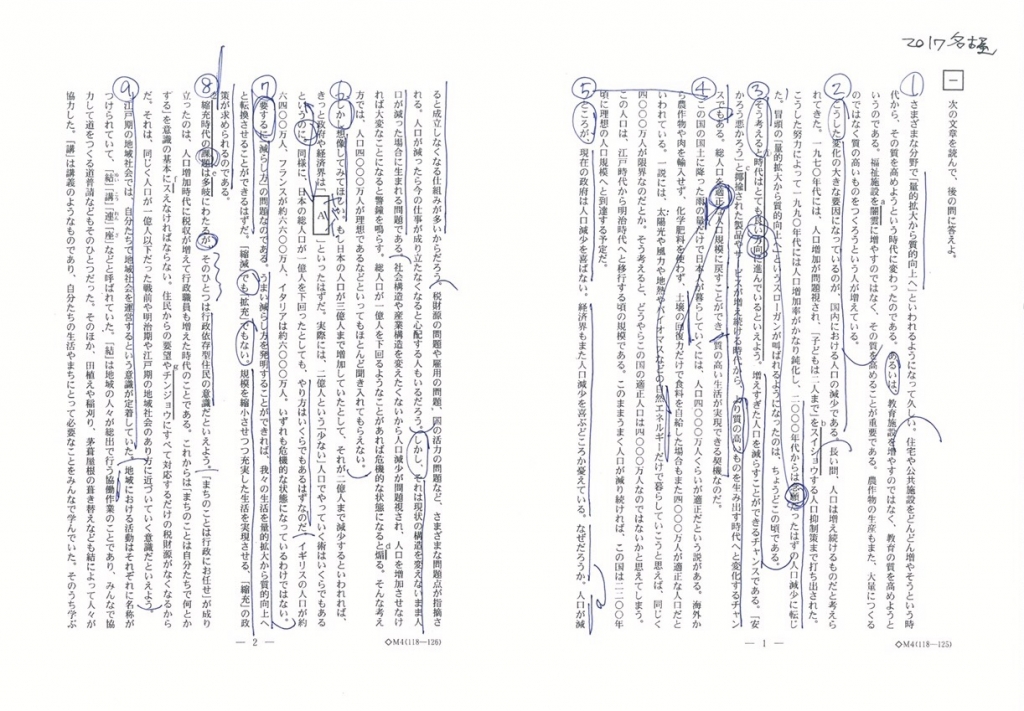 2017 名古屋
一 次の文章を読んで、後の問に答えよ。
① さまざまな分野で「量的拡大から質的向上へ」といわれるようになって久しい。住宅や公共施設をどんどん増やそうという時
代から、その質を高めようという時代に変わったのである。あるいは、教育施設を増やすのではなく、教育の質を高めようと
いうのである。福祉施設を闇雲に増やすのではなく、その質を高めることが重要である。農作物の生産もまた、大量につくる
のではなく質の高いものをつくろうという人が増えている。
② こうした変化の大きな要因になっているのが、国内における人口の減少である。長い間、人口は増え続けるものだと考えら
れてきた。一九七〇年代には、人口増加が問題視され、「子どもは二人まで」をスイショウする人口抑制策まで打ち出された。
こうした努力によって一九九〇年代には人口増加率がかなり鈍化し、二〇〇〇年代からは念願だったはずの人口減少に転じ
た。冒頭の「量的拡大から質的向上へ」というスローガンが叫ばれるようになったのは、ちょうどこの頃である。
③ そう考えると時代はとても良い方向に進んでいるといえよう。増えすぎた人口を減らすことができるチャンスである。「安
かろう悪かろう」と揶揄された製品やサービスが増え続ける時代から、より質の高いものを生み出す時代へと変化するチャン
スでもある。総人口を適正な人口規模に戻すことができ、質の高い生活が実現できる契機なのだ。
④ この国の国土に降った雨の量だけで日本人が暮らしていくには、人口四〇〇〇万人くらいが適正だという説がある。海外か
ら農作物や肉を輸入せず、化学肥料を使わず、土壌の回復力だけで食料を自給した場合もまた四〇〇〇万人が適正な人口だと
いわれている。一説には、太陽光や風力や地熱やバイオマスなどの自然エネルギーだけで暮らしていこうと思えば、同じく
四〇〇〇万人が限界なのだとか。そう考えると、どうやらこの国の適正人口は四〇〇〇万人なのではないかと思えてしまう。
この人口は、江戸時代から明治時代へと移行する頃の規模である。このままうまく人口が減り続ければ、この国は二二〇〇年
頃に理想の人口規模へと到達する予定だ。
⑤ ところが、現在の政府は人口減少を喜ばない。経済界もまた人口減少を喜ぶどころか憂えている。なぜだろうか。人口が減
— 1 —
◇M4(118—125)
ると成立しなくなる仕組みが多いからだろう。税財源の問題や雇用の問題、国の活力の問題など、さまざまな問題点が指摘さ
れる。人口が減ったら今の仕事が成り立たなくなると心配する人もいるだろう。しかし、それは現状の構造を変えないまま人
口が減った場合に生まれる問題である。社会構造や産業構造を変えたくないから人口減少が問題視され、人口を増加させなけ
れば大変なことになると警鐘を鳴らす。総人口が一億人を下回るようなことがあれば危機的な状態になると煽る。そんな考え
方では、人口四〇〇〇万人が理想であるといってもほとんど聞き入れてもらえない。
⑥ しかし想像してみてほしい。もし日本の人口が三億人まで増加していたとして、それが二億人まで減少するといわれれば、
きっと政府や経済界は「 A 」といったはずだ。実際には、二億人という「少ない」人口でやっていく術はいくらでもある
というのに。同様に、日本の総人口が一億人を下回ったとしても、やり方はいくらでもあるはずなのだ。イギリスの人口が約
六四〇〇万人、フランスが約六六〇〇万人、イタリアは約六〇〇〇万人、いずれも危機的な状態になっているわけではない。
⑦ 要するに「減らし方」の問題なのである。うまい減らし方を発明することができれば、我々の生活を量的拡大から質的向上へ
と転換させることができるはずだ。「縮減」でも「拡充」でもない。規模を縮小させつつ充実した生活を実現させる、「縮充」の政
策が求められるのである。
⑧ 縮充時代の課題は多岐にわたるが、そのひとつは行政依存型住民の意識だといえよう。「まちのことは行政にお任せ」が成り
立ったのは、人口増加時代に税収が増えて行政職員も増えた時代のことである。これからは「まちのことは自分たちで何とか
する」を意識の基本にスえなければならない。住民からの要望やチンジョウにすべて対応するだけの税財源がなくなるから
だ。それは、同じく人口が一億人以下だった戦前や明治期や江戸期の地域社会のあり方に近づいていく意識だといえよう。
⑨ 江戸期の地域社会では、自分たちで地域社会を運営するという意識が定着していた。地域における活動はそれぞれに名称が
つけられていて、「結」「講」「連」「座」などと呼ばれていた。「結」は地域の人々が総出で行う協働作業のことであり、みんなで協
力して道をつくる道普請などもそのひとつだった。そのほか、田植えや稲刈り、茅葺屋根の葺き替えなども結によって人々が
協力した。「講」は講義のようなものであり、自分たちの生活やまちにとって必要なことをみんなで学んでいた。そのうち学ぶ
— 2 —
◇M4(118—126)